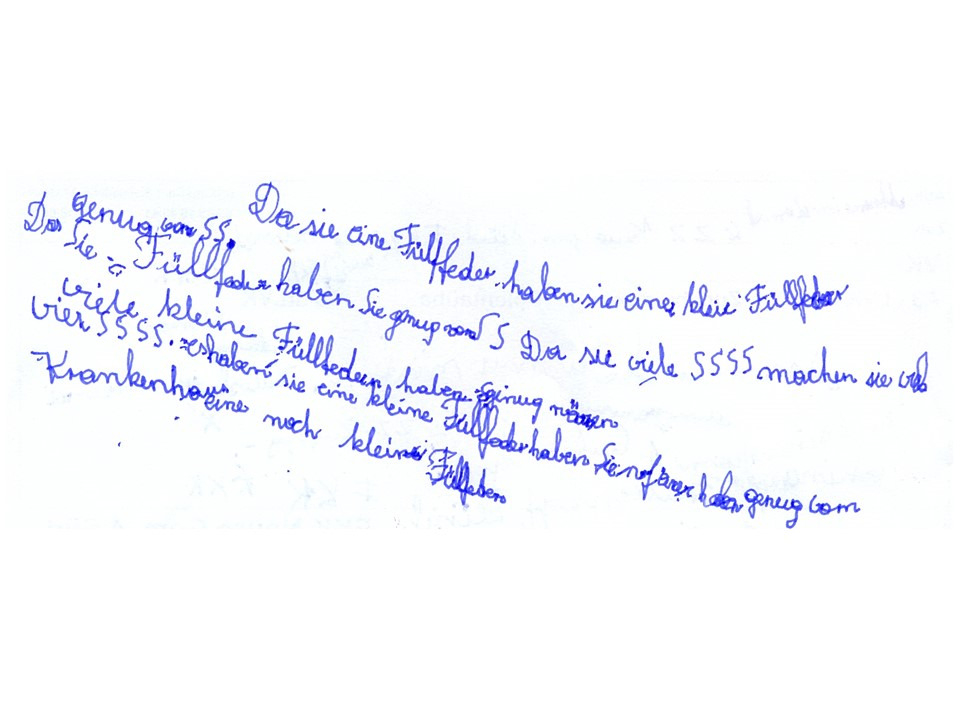 genug von SS. Da sie eine Füllfeder haben sie eine kleie Füllfeder
Da Sie Füllfeder haben Sie genug von S S Da sie viele SSSS machen sie
viele kleine Füllfedern haben
vier SSSS. haben sie eine kleine Füllfeder haben Sie genug vom
Krankenhaus eine noch kleine Füllfeder